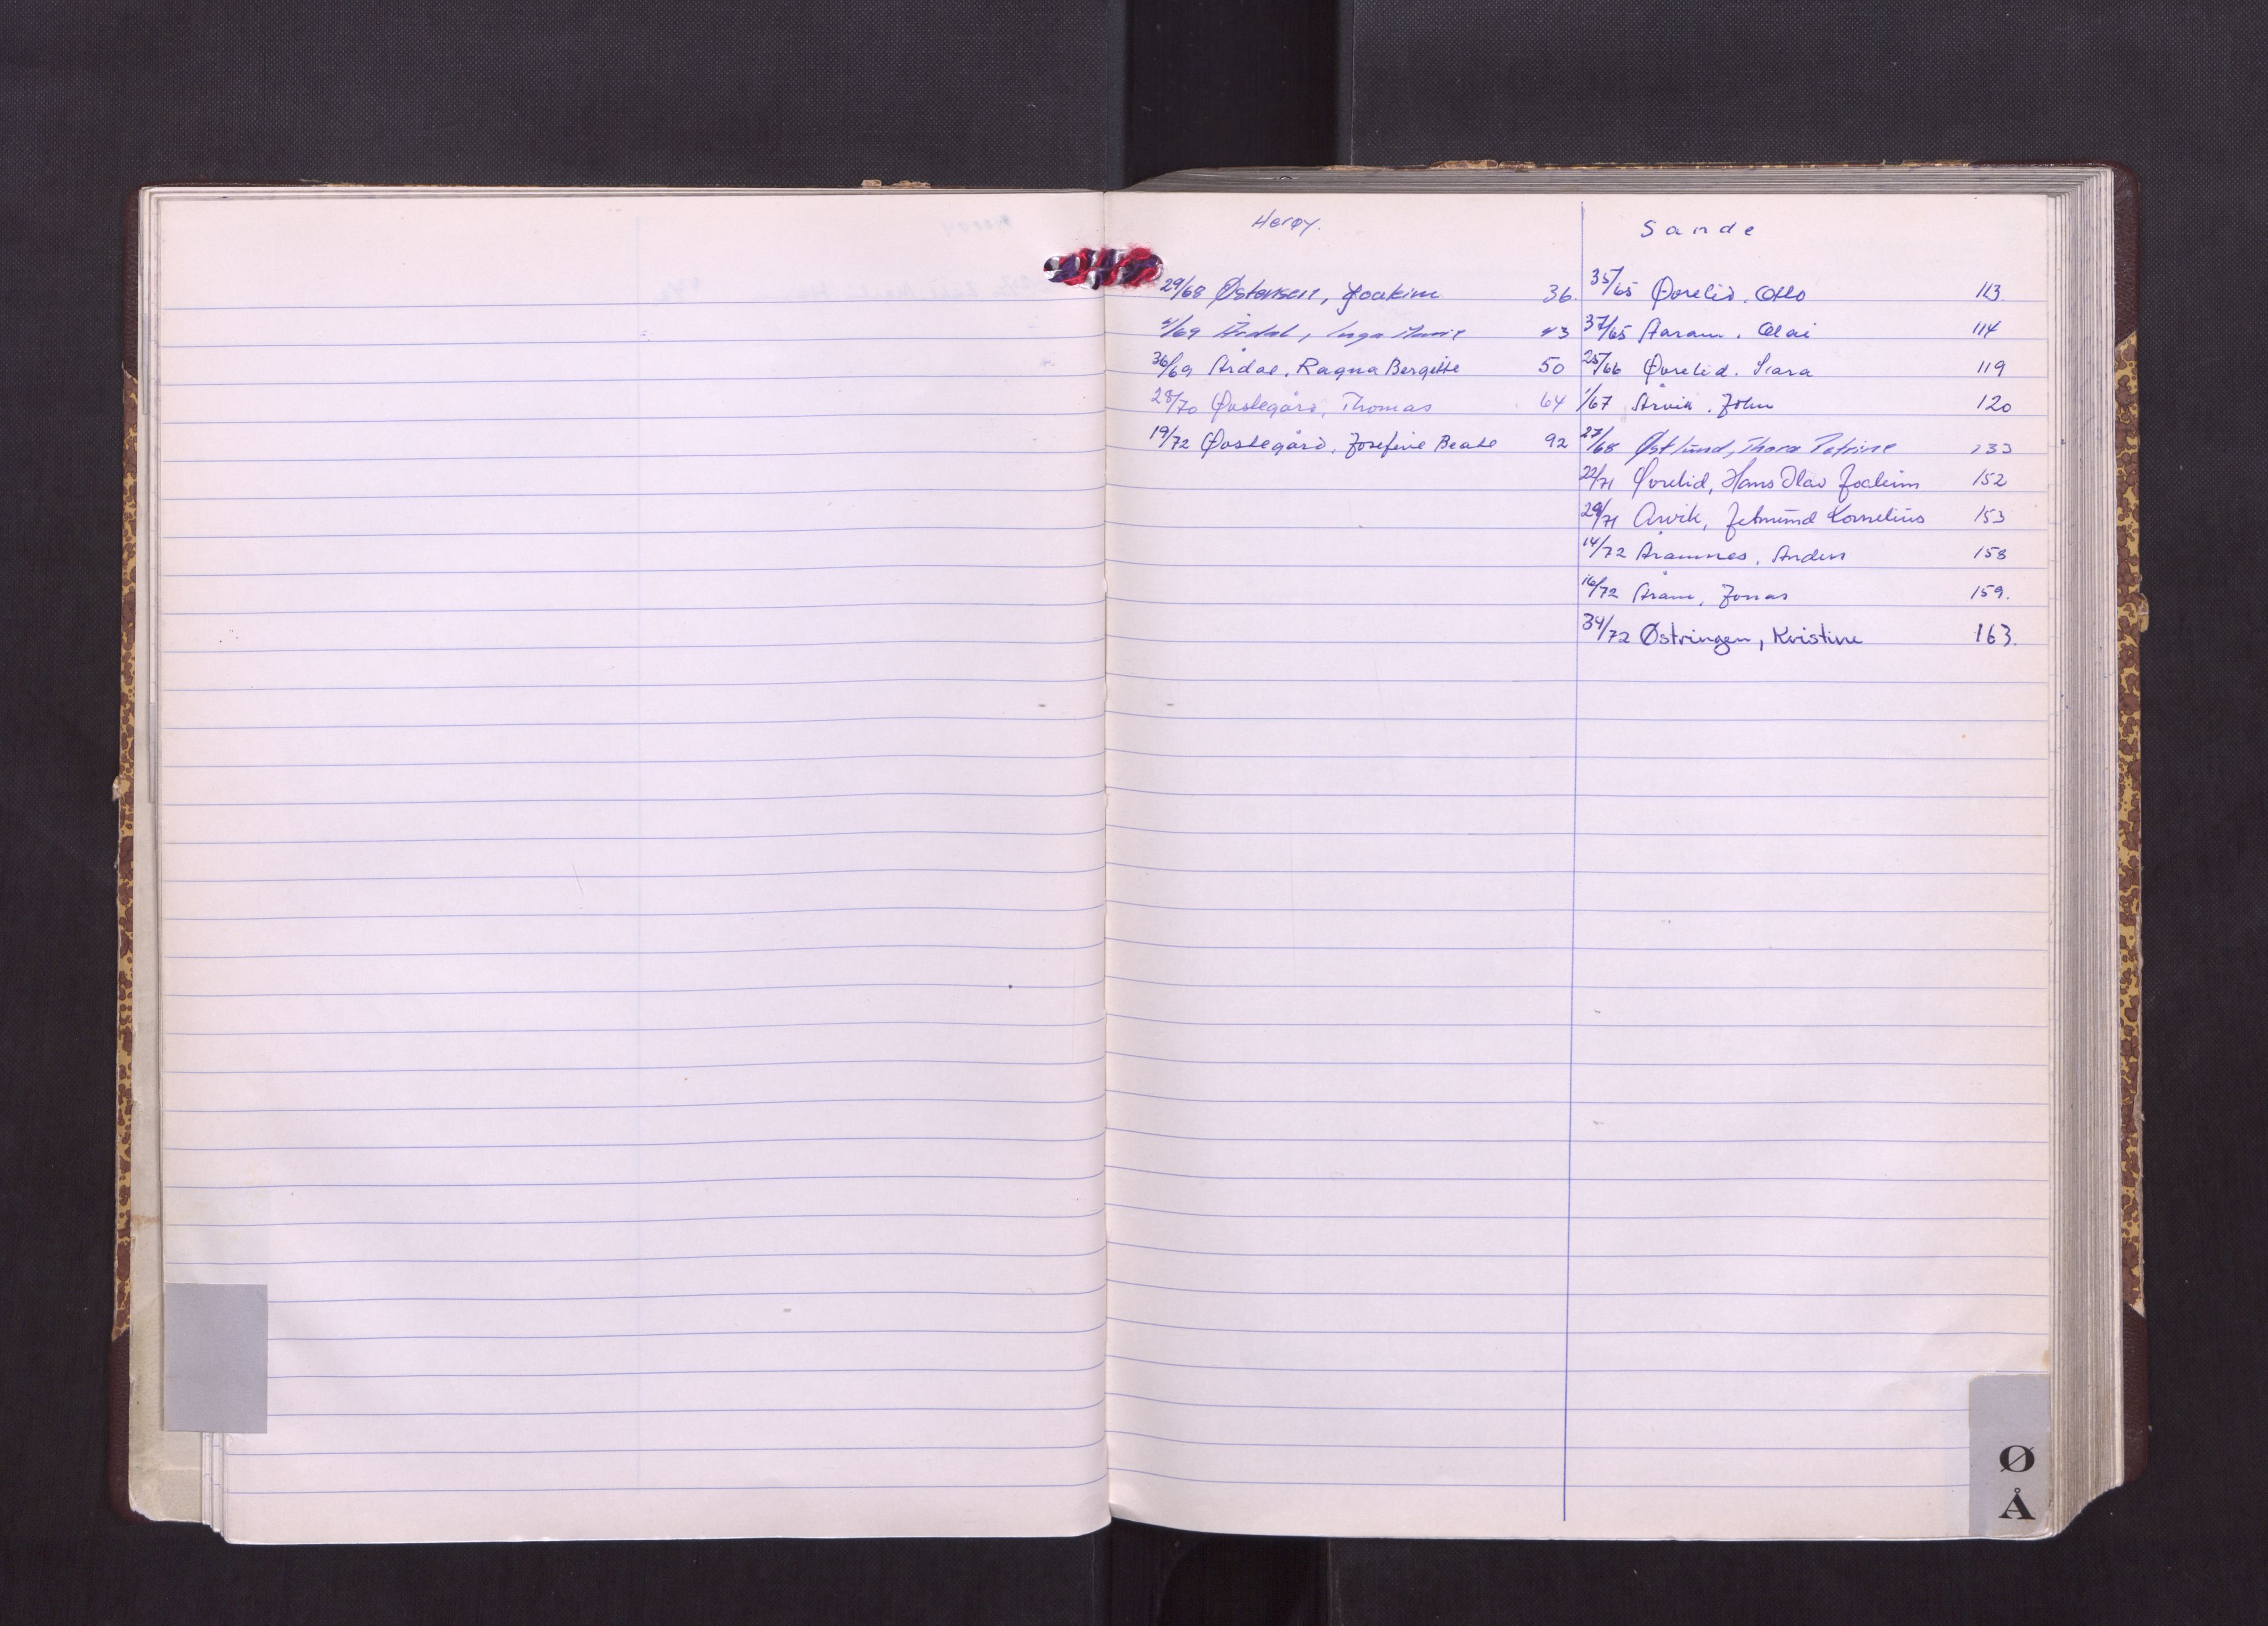 Herøy.
29/68 Østensen, Joakim 36.
4/69 Årdal, Inga Marie 43
36/69 Årdal, Ragna Bergitte 50
28/70 Øvstegård, Thomas 64
19/72 Øvstegård, Josefine Beate 92
Sande
35/65 Øvrelid. Otto 113.
37/65 Aaram. Olai 114
25/66 Øvrelid. Sara 119
1/67 Årvik. John 120
27/68 Østlund, Thora Petrine 133
22/71 Øvrelid, Hans Olav Joakim 152
29/71 Årvik, Jetmund Kornelius 153
14/72 Åramnes, Anders 158
16/72 Åram, Jonas 159.
34/72 Østringen, Kristine 163.
Ø
Å